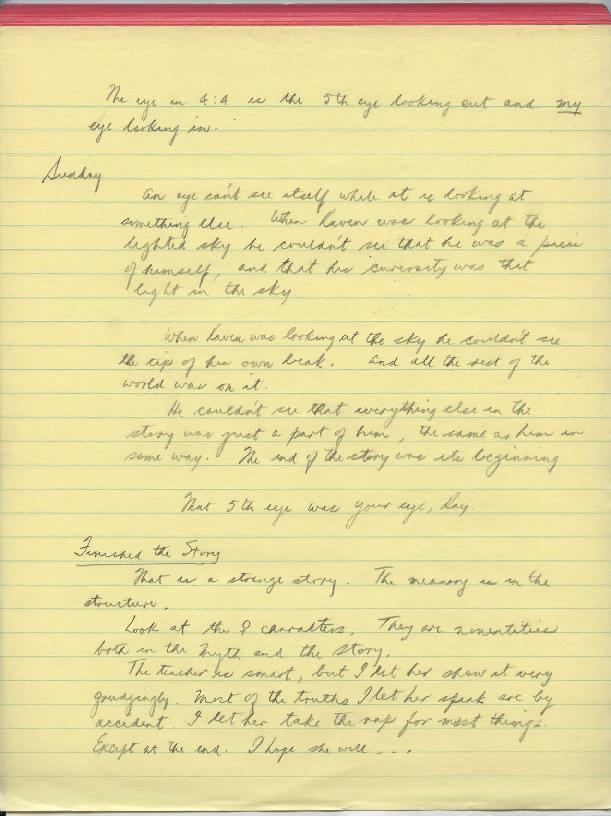 The eye in 4:4 is the 5th eye looking out and my
eye looking in.
Sunday
An eye can't see itself while it is looking at
something else. When Raven was looking at the
lighted sky he couldn't see that he was a piece
of himself, and that his curiosity was that
light in the sky
When Raven was looking at the sky he couldn't see
the tip of his own beak. And all the rest of the
world was on it.
He couldn't see that everything else in the
story was just a part of him, the same as him in
some way. The end of the story was its beginning
That 5th eye was your eye, Kay.
Finished the Story
That is a strange story. The meaning is in the
structure.
Look at the ♀ characters. They are nonentities
both in the Myth and the story.
The teacher is smart, but I let her show it very
grudgingly. Most of the truths I let her speak are by
accident. I let her take the rap for most things.
Except at the end. I hope she will - - .